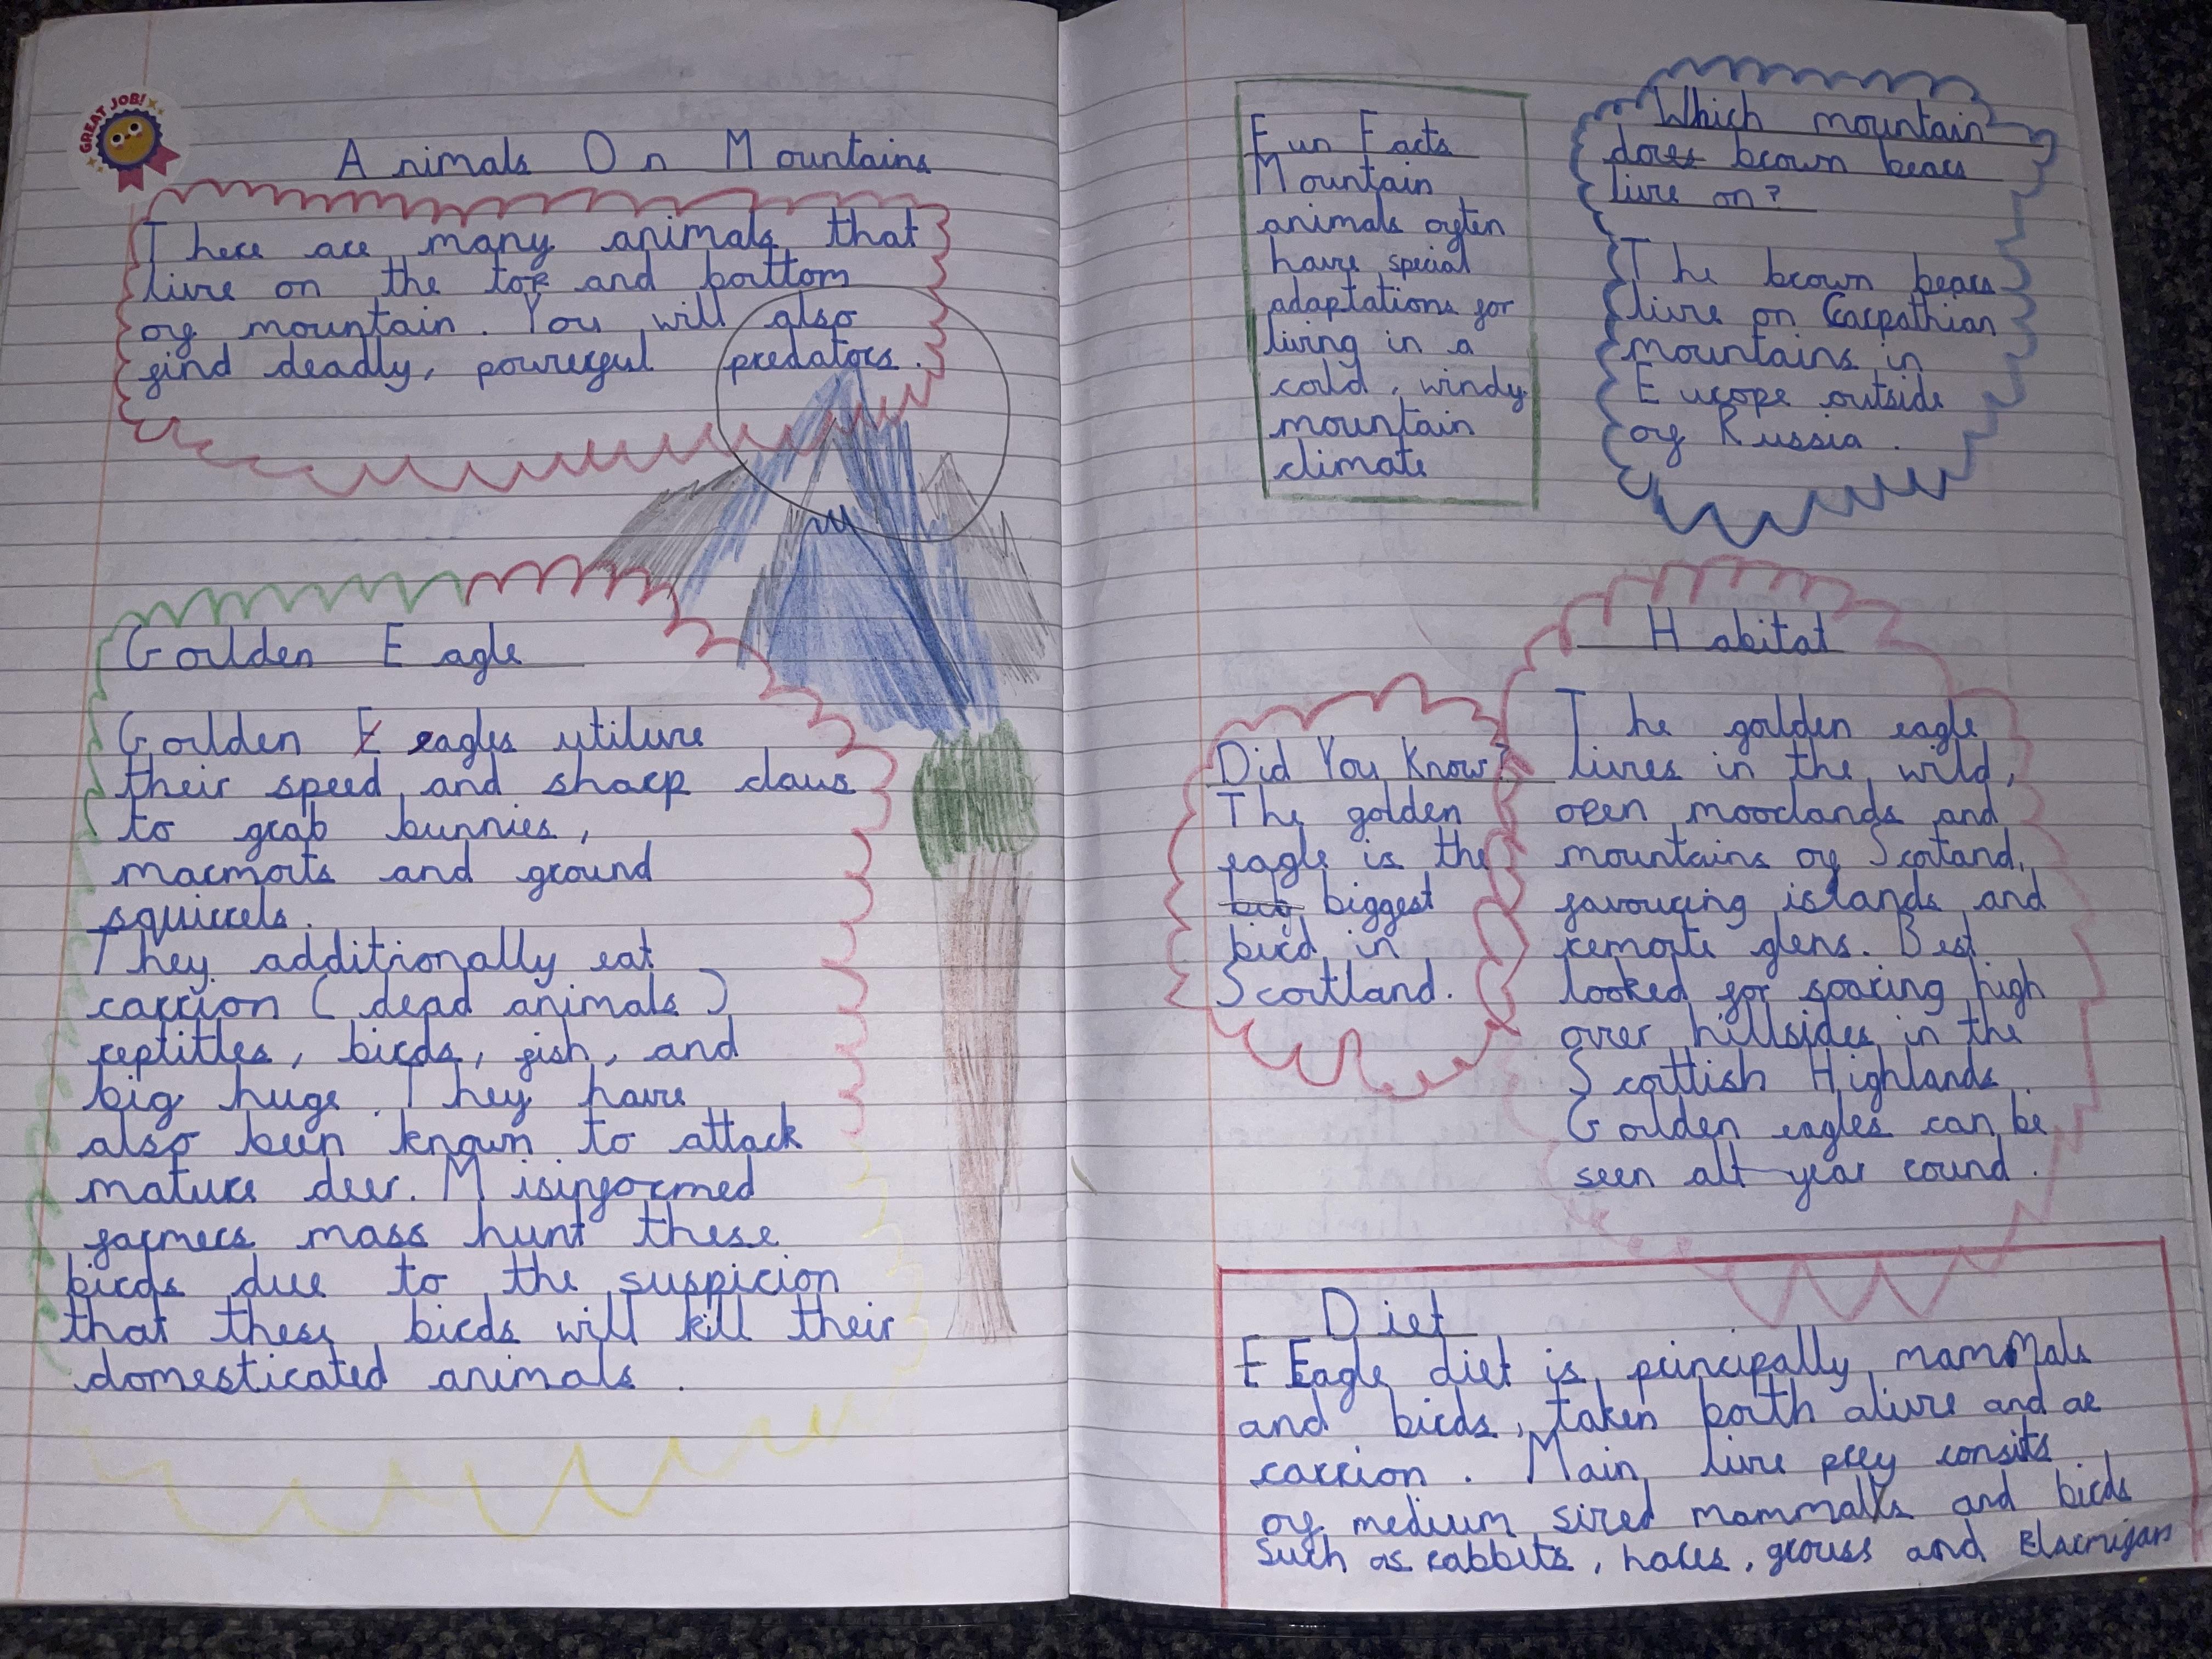 GREAT JOB!
Animals On Mountains
There are many animals that
live on the top and bottom
of mountain. You will also
find deadly, powerful predators.
Golden Eagle
Golden E eagles utilize
their speed and sharp claws
to grab bunnies,
marmots and ground
squirrels.
They additionally eat
carrion (dead animals)
reptitles, birds, fish, and
big huge. They have
also been known to attack
mature deer. Misinformed
farmers mass hunt these
birds due to the suspicion
that these birds will kill their
domesticated animals.
Fun Facts
Mountain
animals often
have special
adaptations for
living in a
cold, windy
mountain
climate
Which mountain
does brown bears
live on?
The brown bears
live on Carpathian
mountains in
Europe outside
of Russia.
Did You Know?
The golden
eagle is the
big biggest
bird in
Scotland.
Habitat
The golden eagle
lives in the wild,
open moorlands and
mountains of Scotand,
favouring islands and
remote glens. Best
looked for soaring high
over hillsides in the
Scottish Highlands.
Golden eagles can be
seen all year round.
Diet
E Eagle diet is principally mammals
and birds, taken both alive and as
carrion. Main live prey consits
of medium sized mammals and birds
such as rabbits, hares, grouse and